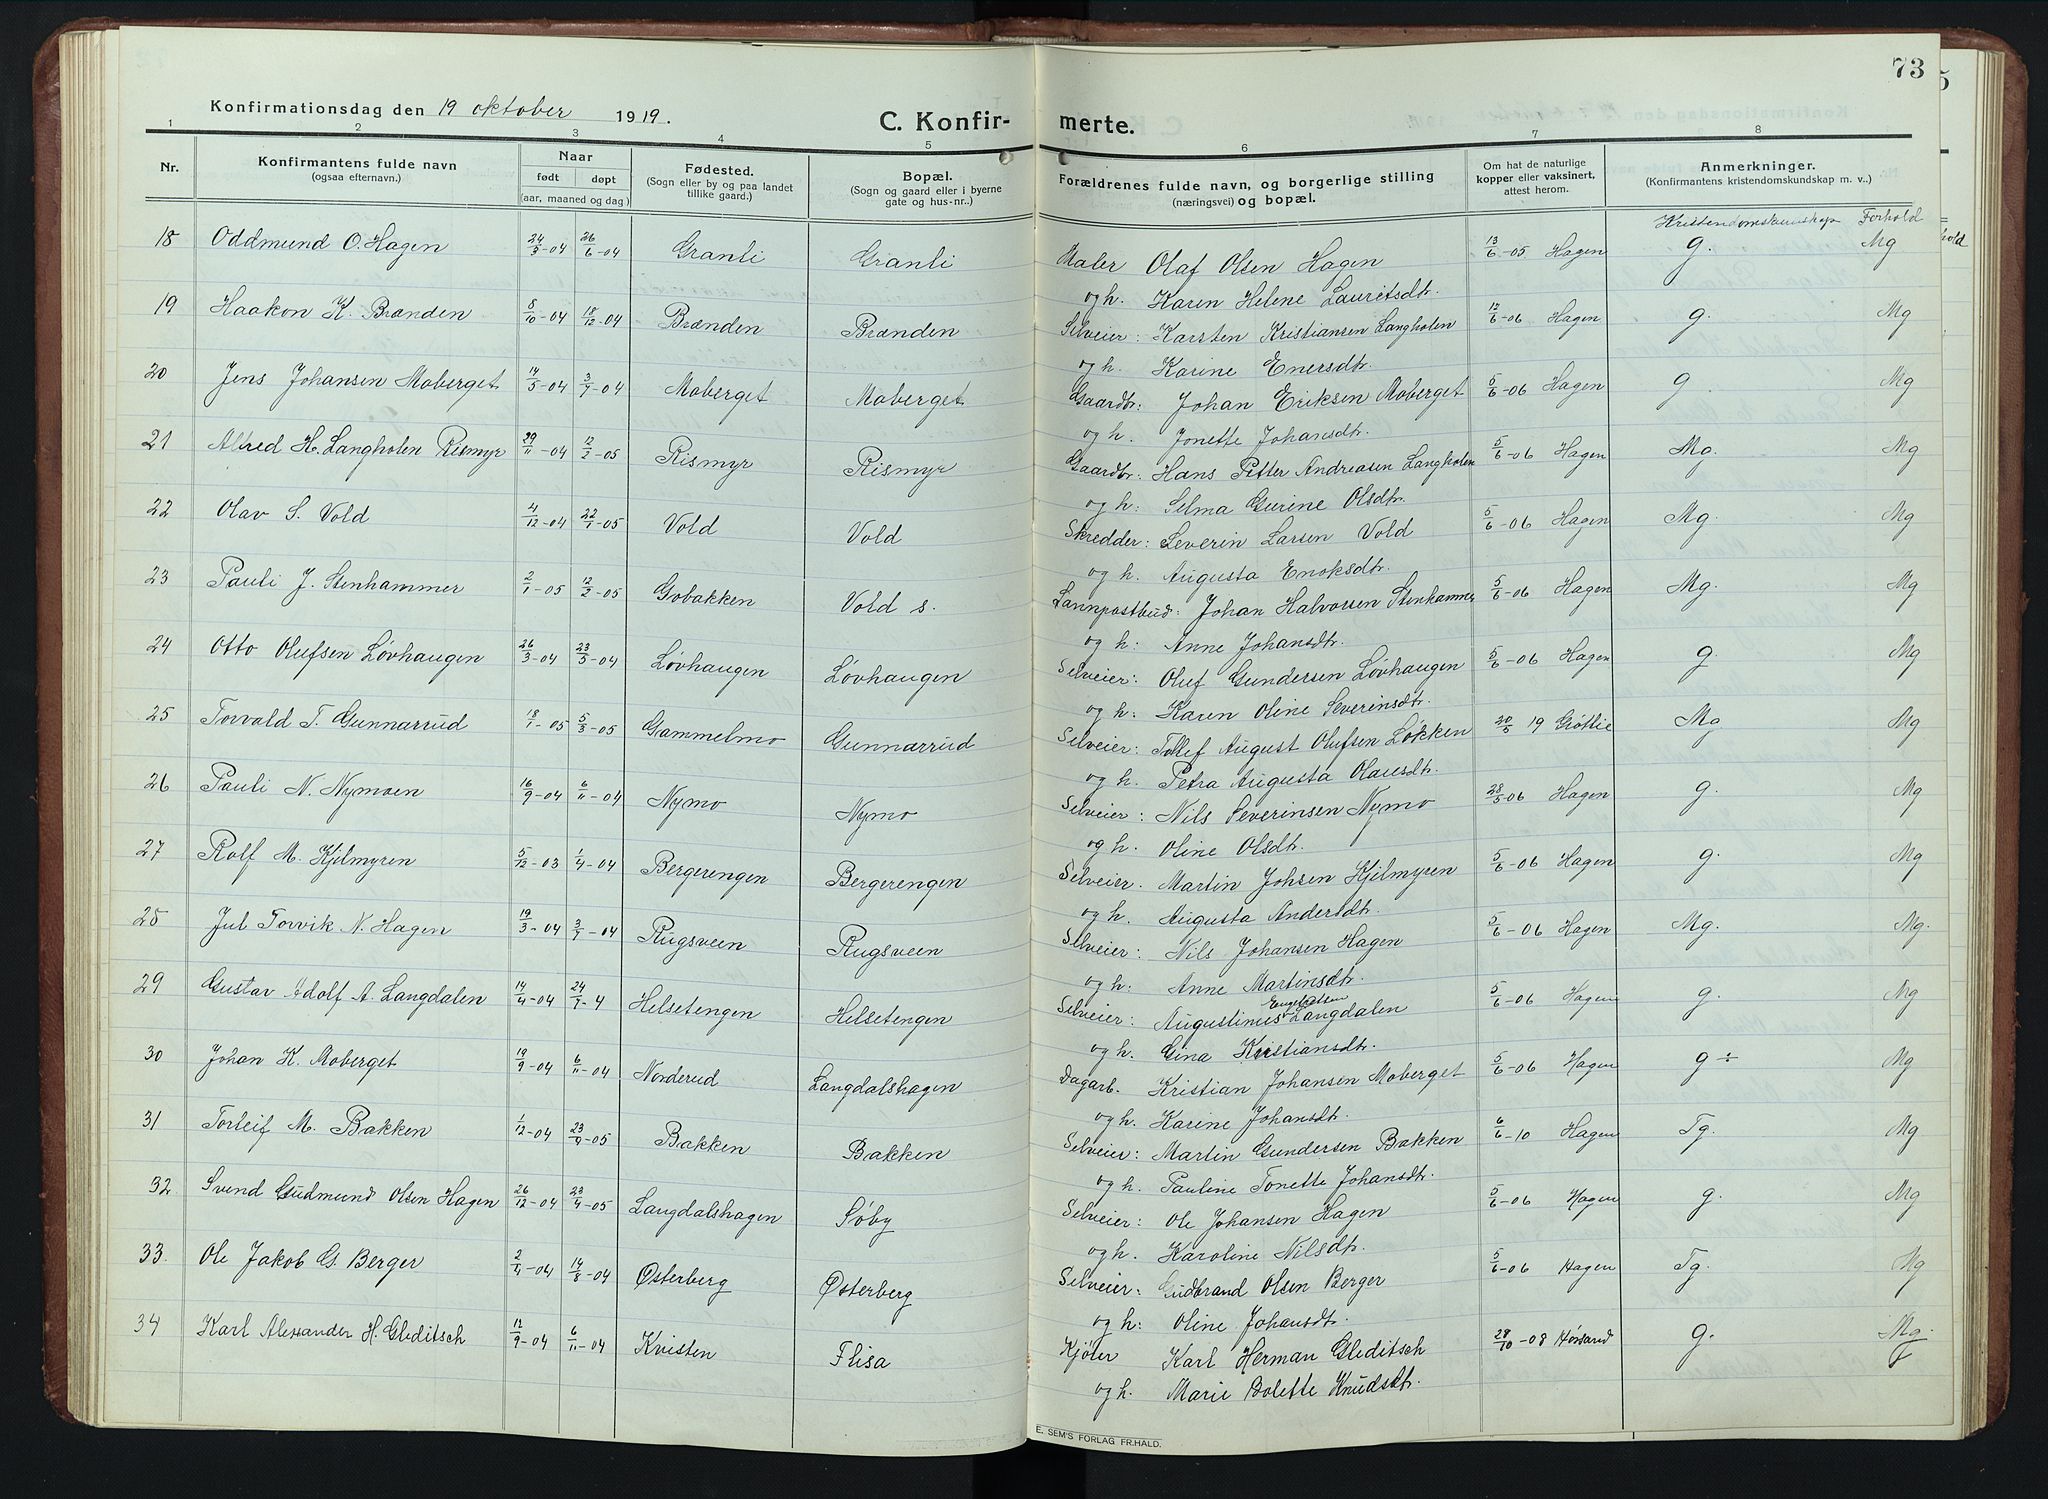 73
Konfirmationsdag den 19 oktober 1919.
C. Konfirmerte.
1 2 3 4 5 6 7 8
Nr.
Konfirmantens fulde navn
(ogsaa efternavn.)
Naar
født døpt
(aar, maaned og dag)
Fødested.
(Sogn eller by og paa landet
tillike gaard.)
Bopæl.
(Sogn og gaard eller i byerne
gate og hus-nr..)
Forældrenes fulde navn, og borgerlige stilling
(næringsvei) og bopæl.
Om hat de naturlige
kopper eller vaksinert,
attest herom.
Anmerkninger.
(Konfirmantens kristendomskundskap m. v..)
Kristendomskunskap Forhold
18 Oddmund O. Hagen 24/3-04 26/6-04 Granli Granli Maler Olaf Olsen Hagen 13/6-05 Hagen g. Mg
og h. Karen Helene Lauritsdtr.
19 Haakon K. Brænden 8/10-04 18/12-04 Brænden Brænden Selveier: Karsten Kristiansen Langholen 12/6-06 Hagen g. Mg
og h. Karine Enersdtr.
20 Jens Johansen Moberget 14/5-04 3/7-04 Moberget Moberget Gaardbr: Johan Eriksen Moberget 5/6-06 Hagen g. Mg
og h. Jonette Johansdtr.
21 Alfred H. Langholen Rismyr 29/11-04 12/2-05 Rismyr Rismyr Gaardbr: Hans Petter Andreasen Langholen 5/6-06 Hagen Mg. Mg
og h: Selma Gurine Olsdtr.
22 Olav S. Vold 4/12-04 22/1-05 Vold Vold Skredder: Severin Larsen Vold 5/6-06 Hagen Mg. Mg
og h. Augusta Enoksdtr.
23 Pauli J. Stenhammer 2/1-05 12/2-05 Gobakken Vold s. Lannpostbud: Johan Halvorsen Stenhammer 5/6-06 Hagen Mg. Mg
og h: Anne Johansdtr.
24 Otto Olufsen Løvhaugen 26/3-04 23/5-04 Løvhaugen Løvhaugen Selveier: Oluf Gundersen Løvhaugen 5/6-06 Hagen g. Mg
og h: Karen Oline Severinsdtr.
25 Torvald T. Gunnarrud 18/1-05 5/3-05 Gammelmo Gunnarrud Selveier: Tollef August Olufsen Løkken 20/5 19 Grøttie Mg Mg
og h. Petra Augusta Olausdtr.
26 Pauli N. Nymoen 16/9-04 6/11-04 Nymo Nymo Selveier: Nils Severinsen Nymo 28/5-06 Hagen g. Mg
og h. Oline Olsdtr.
27 Rolf M. Kjilmyren 5/12-03 1/4-04 Bergerengen Bergerengen Selveier. Martin Johsen Kjilmyren 5/6-06 Hagen g. Mg
og h. Augusta Andersdtr.
25 Jul Torvik N. Hagen 19/3-04 3/7-04 Rugsveen Rugsveen Selveier: Nils Johansen Hagen 5/6-06 Hagen Mg. Mg.
og h: Anne Martinsdtr.
29 Gustav Adolf A. Langdalen 14/4-04 24/7-4 Helsetengen Helsetengen Selveier: Augustinus Langdalen 5/6-06 Hagen g. Mg
og h. Gina Kristiansdtr.
30 Johan K. Moberget 19/9-04 6/11-04 Norderud Langdalshagen Dagarb. Kristian Johansen Moberget 5/6-06 Hagen g ÷ Mg
og h. Karine Johansdtr.
31 Torleif M. Bakken 1/12-04 23/4-05 Bakken Bakken Selveier: Martin Gundersen Bakken 6/6-10 Hagen Tg. Mg
og h. Pauline Tonette Johansdtr.
32 Svend Gudmund Olsen Hagen 26/12-04 23/4-05 Langdalshagen Søby Selveier: Ole Johansen Hagen 5/6-06 Hagen g. Mg
og h. Karoline Nilsdtr.
33 Ole Jakob G. Berger 2/4-04 14/8-04 Østerberg Østerberg Selveier: Gudbrand Olsen Berger 5/6-06 Hagen Tg. Mg
og h: Oline Johansdtr.
34 Karl Alexander H. Gleditsch 12/9-04 6/11-04 Kvisten Flisa Kjøler Karl Herman Gleditsch 28/10-08 Hørsand g. Mg.
og h. Marie Bolette Knudsdtr.
E. SEM'S FORLAG FR.HALD.